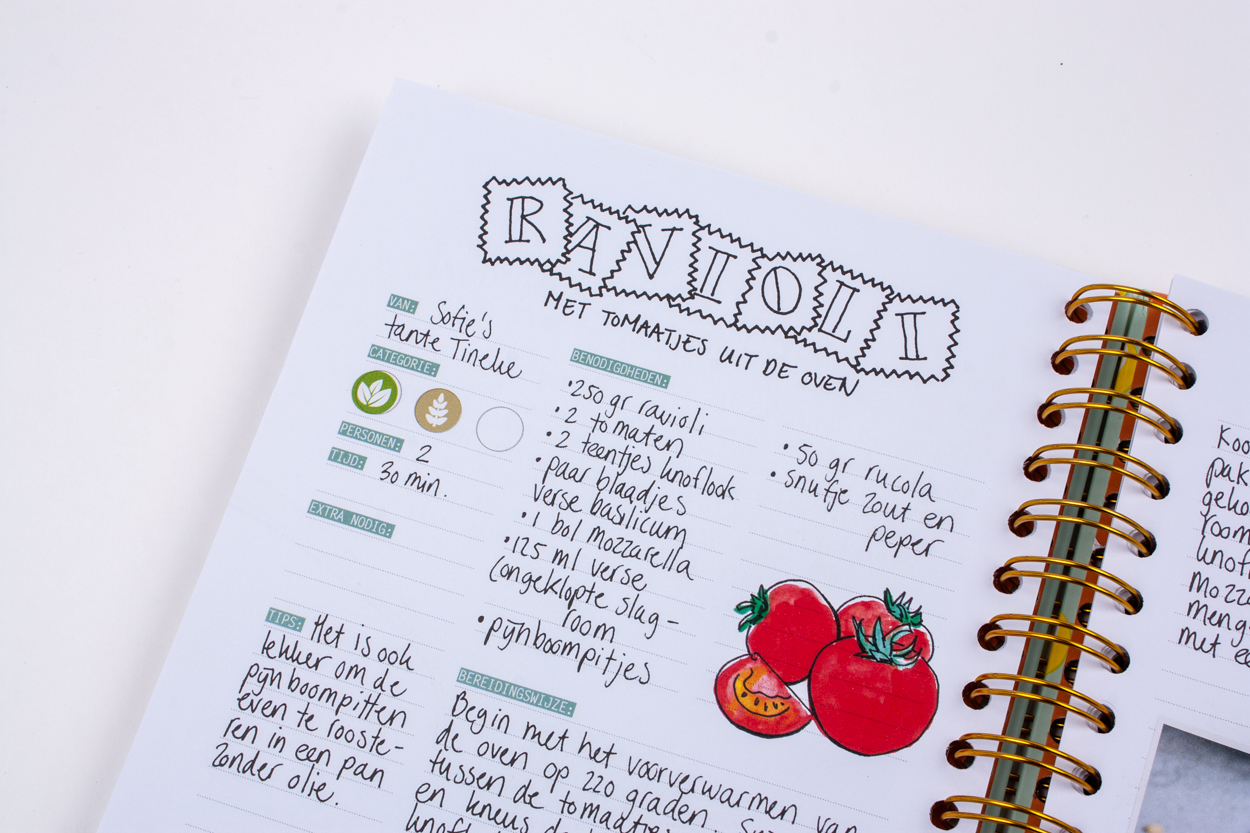 RAVIOLI
MET TOMAATJES UIT DE OVEN
VAN: Sofie's
tante Tineke
CATEGORIE:
PERSONEN: 2
TIJD:
30 min.
EXTRA NODIG:
TIPS: Het is ook
lekker om de
pijnboompitten
even te rooste-
ren in een pan
zonder olie.
BENODIGDHEDEN:
• 250 gr ravioli
• 2 tomaten
• 2 teentjes knoflook
• paar blaadjes
verse basilicum
• 1 bol mozzarella
• 125 ml verse
(ongeklopte slag-
room
• pijnboompitjes
• 50 gr rucola
• snufje zout en
peper
BEREIDINGSWIJZE:
Begin met het voorverwarmen van
de oven op 220 graden.
tussen de tomaatjes
en kneus de
Koo
pak
geko
room
knofl
mozza
meng
met ee